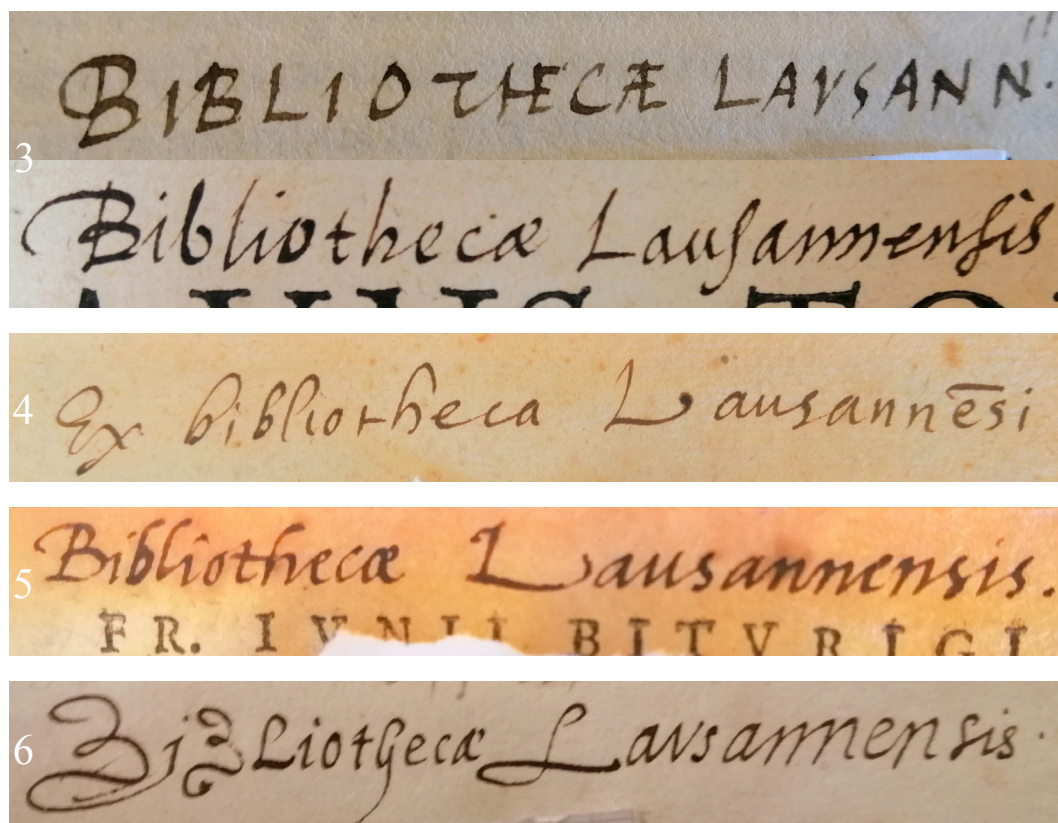 BIBLIOTHECÆ LAVSANN.
3
Bibliothecæ Lauſannenſis
4
Ex bibliotheca Lausannēsi
Bibliothecæ Lausannensis.
5
FR. IVNII BITVRIGI
6
BiBLiothecæ Lavsannensis.